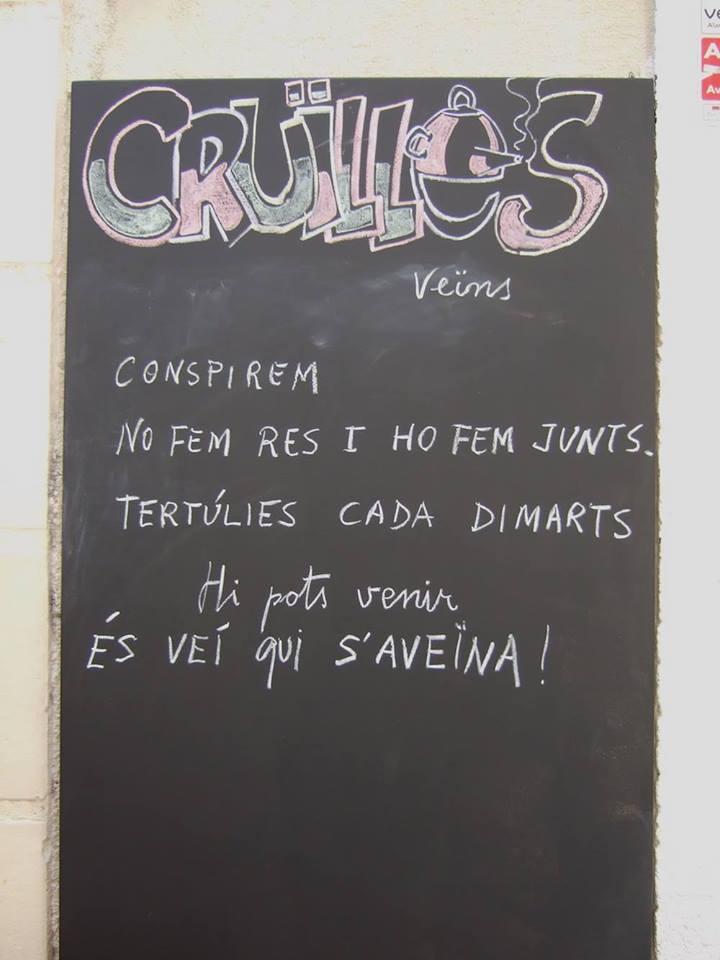 CRUÏLLES
Veïns
CONSPIREM
NO FEM RES I HO FEM JUNTS.
TERTÚLIES CADA DIMARTS
Hi pots venir
ÉS VEÍ qui S'AVEÏNA!